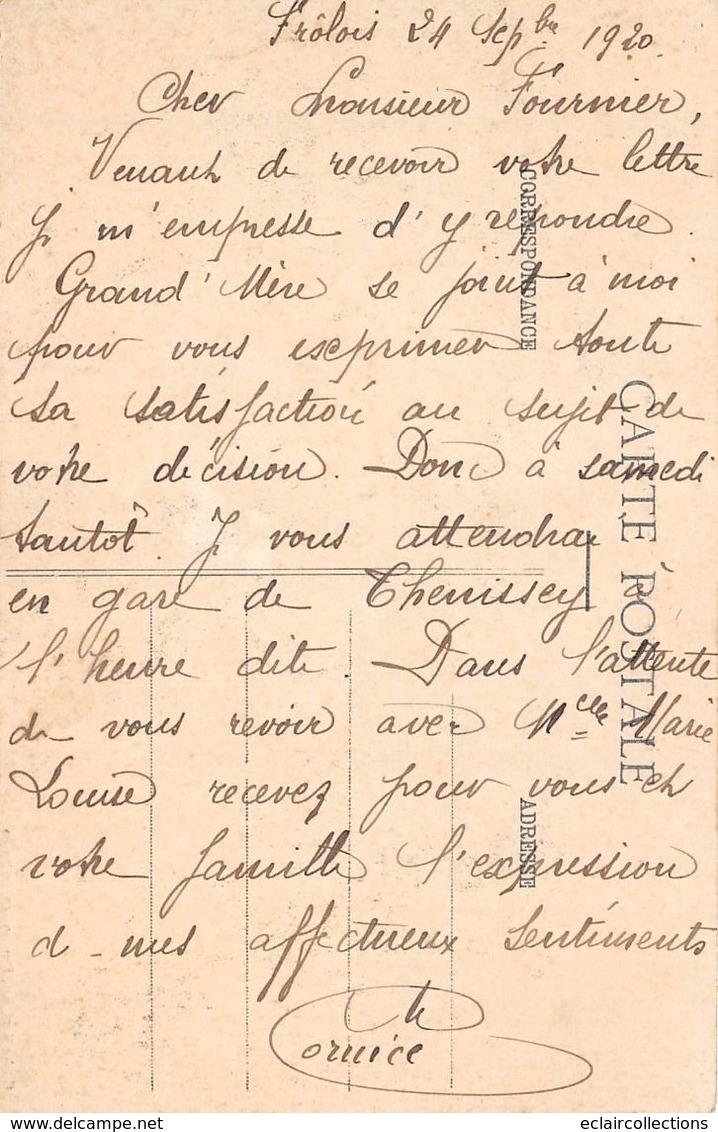 Frôlois 24 Sepbre 1920
Cher Monsieur Fournier,
Venant de recevoir votre lettre
Je m'empresse d'y repondre.
Grand'Mère se joint à moi
pour vous exprimer toute
sa satisfaction au sujet de
votre décision. Donc à samedi
tantôt. Je vous attendrai
en gare de Thenissey à
l'heure dite. Dans l'attente
de vous revoir avec Melle Marie
Louise recevez pour vous et
votre famille l'expression
de mes affectueux sentiments
CORRESPONDANCE
CARTE POSTALE
ADRESSE
eclaircollections@delcampe.net